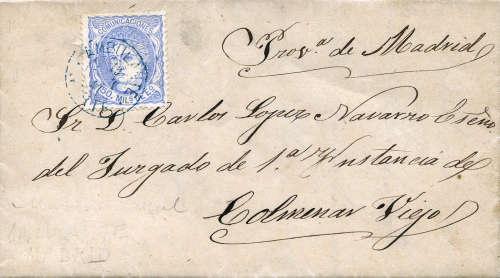 COMUNICACIONES
50 MILS
Prov.ª de Madrid
Sr D. Carlos Lopez Navarro Esſno
del Juzgado de 1.ª Ynstancia de
Colmenar Viejo